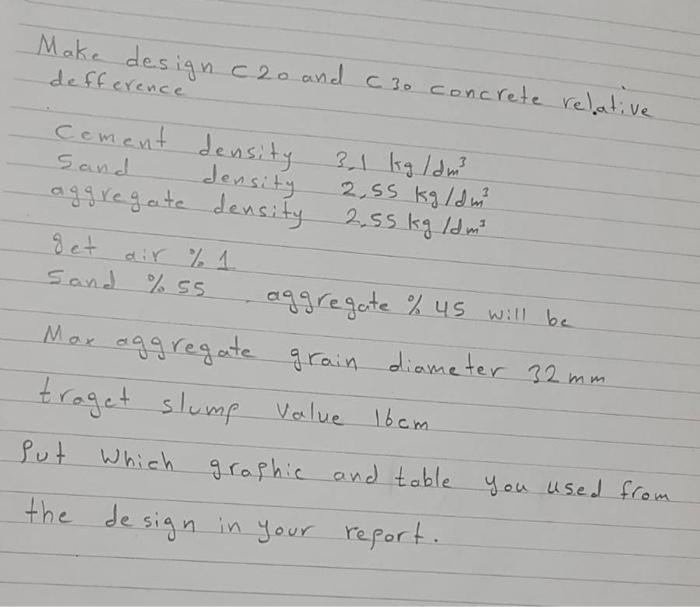 Make design C20 and C30 concrete relative
defference
Cement density 3.1 kg/dm³
Sand density 2,55 kg/dm³
aggregate density 2.55 kg/dm³
get air % 1
Sand % 55 aggregate % 45 will be
Max aggregate grain diameter 32 mm
traget slump Value 16cm
Put which graphic and table you used from
the design in your report.